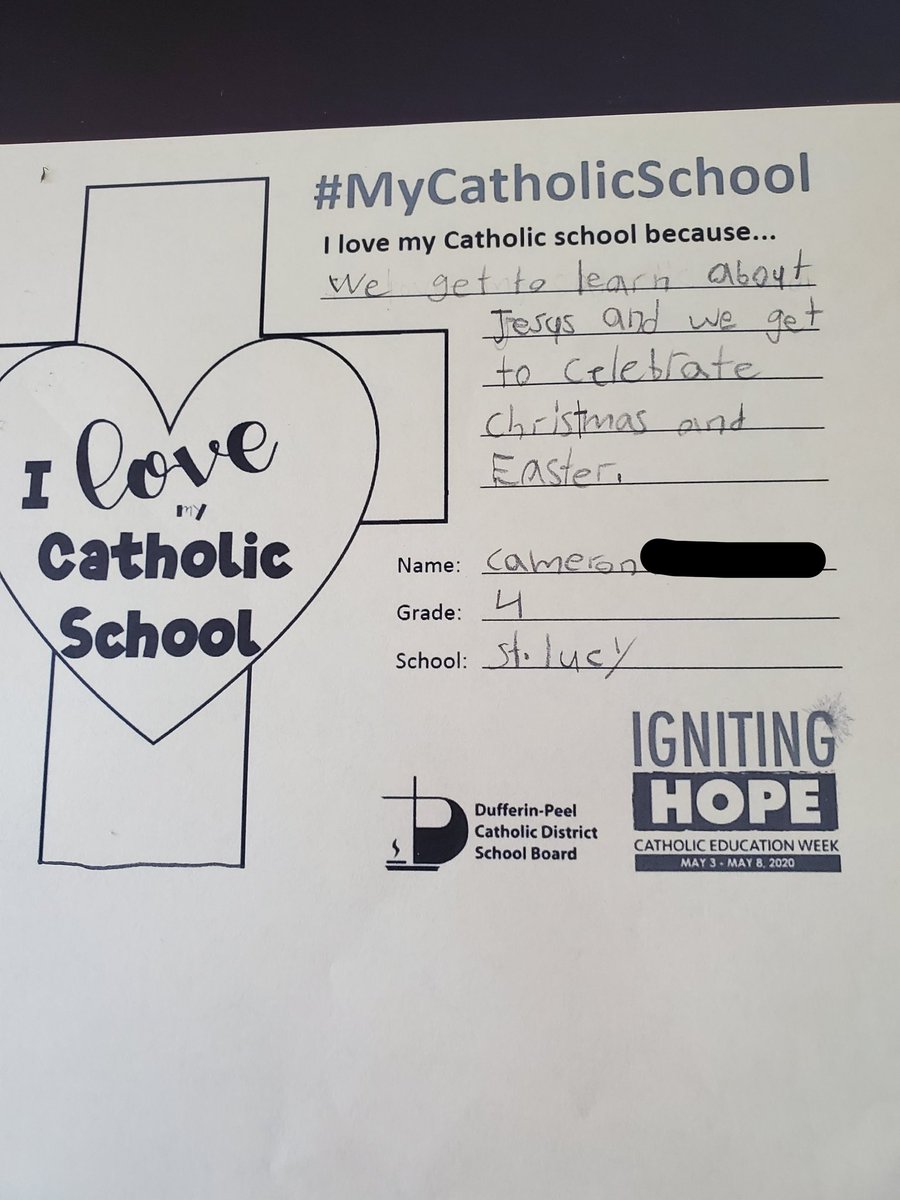 #MyCatholicSchool
I love my Catholic school because...
We get to learn about
Jesus and we get
to celebrate
Christmas and
Easter.
I love
my
Catholic
School
Name: Cameron
Grade: 4
School: St. lucy
Dufferin-Peel
Catholic District
School Board
IGNITING
HOPE
CATHOLIC EDUCATION WEEK
MAY 3 - MAY 8, 2020